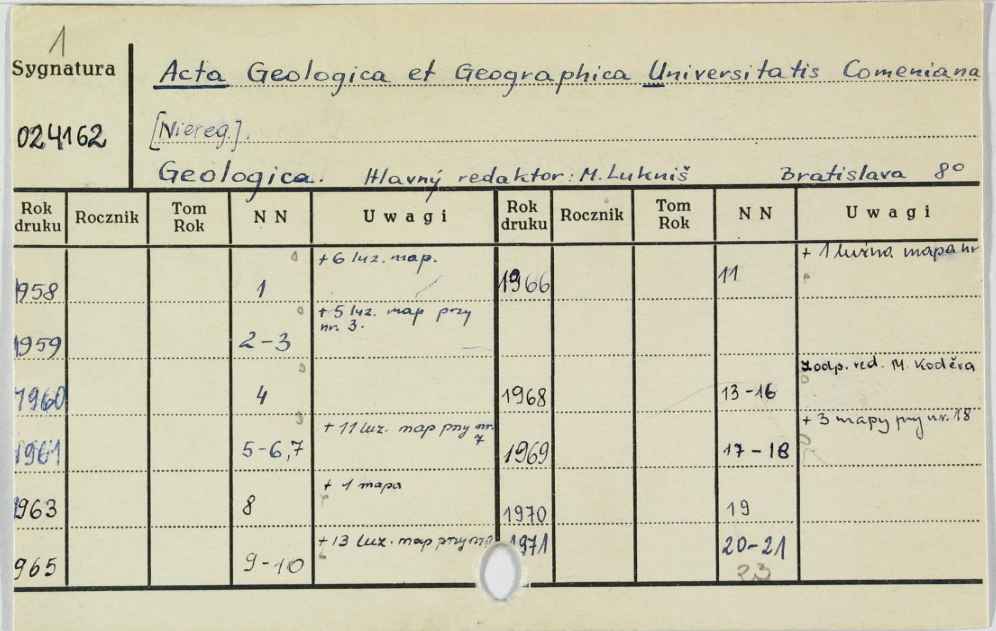 1
Sygnatura
024162
Acta Geologica et Geographica Universitatis Comeniana
[Niereg.].
Geologica. Hlavný redaktor: M. Lukniš Bratislava 8°
Rok druku Rocznik Tom Rok NN Uwagi Rok druku Rocznik Tom Rok NN Uwagi
1958 1 + 6 luz. map. 1966 11 + 1 luźna mapa nr
1959 2-3 + 5 luz. map przy nr. 3.
1960 4 1968 13-16 zodp. red. M. Koděra
1961 5-6,7 + 11 luz. map przy nr. 7 1969 17-18 + 3 mapy przy nr. 18
1963 8 + 1 mapa 1970 19
965 9-10 + 13 luz. map przy 1971 20-21
23